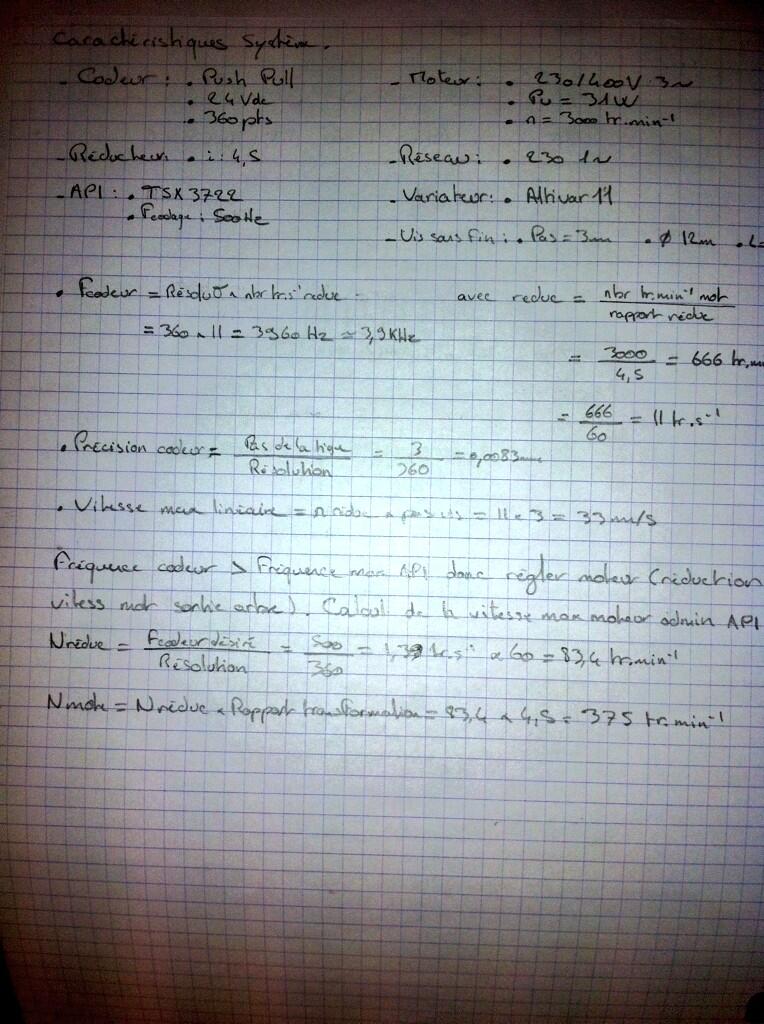 Caractéristiques Système.
- Codeur : • Push Pull
• 24 Vdc
• 360 pts
- Moteur : • 230/400V 3~
• Pu = 31W
• n = 3000 tr.min⁻¹
- Réducteur • i : 4,5
- Réseau : • 230 1~
- API : • TSX 3722
• Fcodage : 500Hz
- Variateur : • Altivar 11
- Vis sans fin : • Pas = 3mm • ø 12m • L=
• Fcodeur = Résolut° x nbr tr.s⁻¹ reduc
= 360 x 11 = 3960 Hz ≃ 3,9KHz
avec reduc = nbr tr.min⁻¹ mot / rapport réduc
= 3000 / 4,5 = 666 tr.m
= 666 / 60 = 11 tr.s⁻¹
• Précision codeur = Pas de la tige / Résolution = 3 / 360 = 0,0083mm
• Vitesse max linéaire = n réduc x pas vis = 11 x 3 = 33 mm/s
Fréquence codeur > Fréquence max API donc régler moteur (réduction
vitess mot sortie arbre). Calcul de la vitesse max moteur admin API
Nréduc = Fcodeur désiré / Résolution = 500 / 360 = 1,39 tr.s⁻¹ x 60 = 83,4 tr.min⁻¹
Nmot = Nréduc x Rapport transformation = 83,4 x 4,5 = 375 tr.min⁻¹